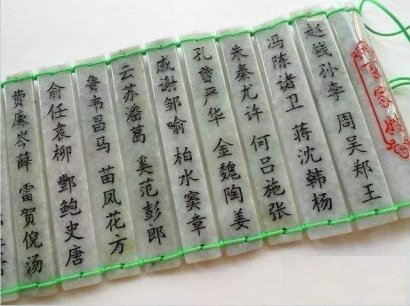 百家姓
赵钱孙李 周吴郑王
冯陈诸卫 蒋沈韩杨
朱秦尤许 何吕施张
孔曹严华 金魏陶姜
戚谢邹喻 柏水窦章
云苏潘葛 奚范彭郎
鲁韦昌马 苗凤花方
俞任袁柳 酆鲍史唐
费廉岑薛 雷贺倪汤